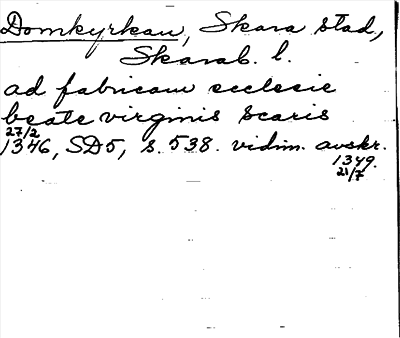 Domkyrkan, Skara stad,
Skarab. l.
ad fabricam ecclesie
beate virginis Scaris
27/2
1346, SD5, s. 538. vidim. avskr.
1349.
21/7